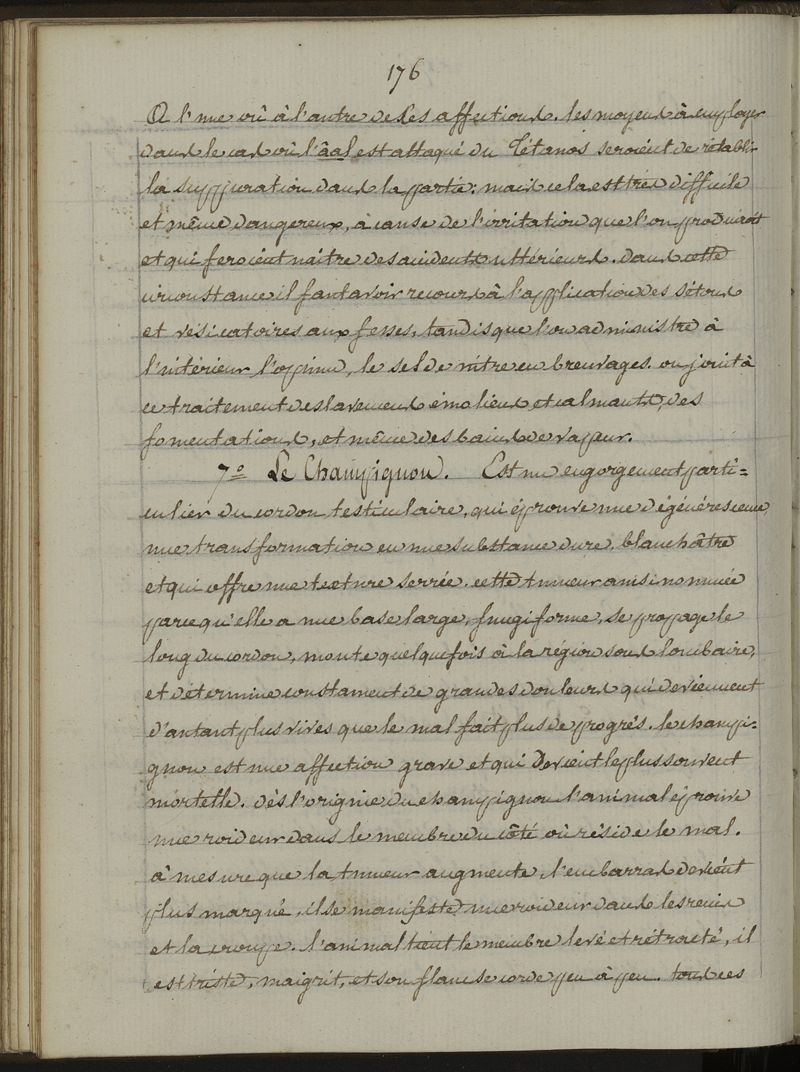 176
A l'une où à l'autre de ces affections. les moyens à employer
dans le cas où l'âal est attaqué du Tétanos seroient de rétablir
la suppuration dans la partie; mais cela est très difficile
et même dangereux, à cause de l'irritation que l'on produiroit
et qui feroient naître des accidents ultérieurs. dans cette
circonstance il faut avoir recours à l'application des sétons
et vésicatoires aux fesses, tandis que l'on administre à
l'intérieur l'opium, le sel de nitre en breuvages. on joint à
ce traitement des lavemens émoliens et calmants, des
fomentations, et même des bains de vapeur.
7º Le Champignon. Est un engorgement parti=
culier du cordon testiculaire, qui éprouve une dégénérescence,
une transformation en une substance dure, blanchâtre
et qui offre une texture serrée. cette tumeur ainsi nommée
parcequ'elle a une base large, fungiforme, se propage le
long du cordon, monte quelquefois à la région sous lombaire,
et détermine constament de grandes douleurs qui deviennent
d'autant plus vives que le mal fait plus de progrès. le champi=
gnon est une affection grave et qui devient le plus souvent
mortelle. dès l'origine du champignon l'animal éprouve
une roideur dans le membre du côté où réside le mal.
à mesure que la tumeur augmente, l'embarras devient
plus marqué, il se manifeste une roideur dans les reins
et la croupe. l'animal tient le membre levé et rétracté, il
est triste, maigrit, et son flanc se corde peu à peu. tous ces